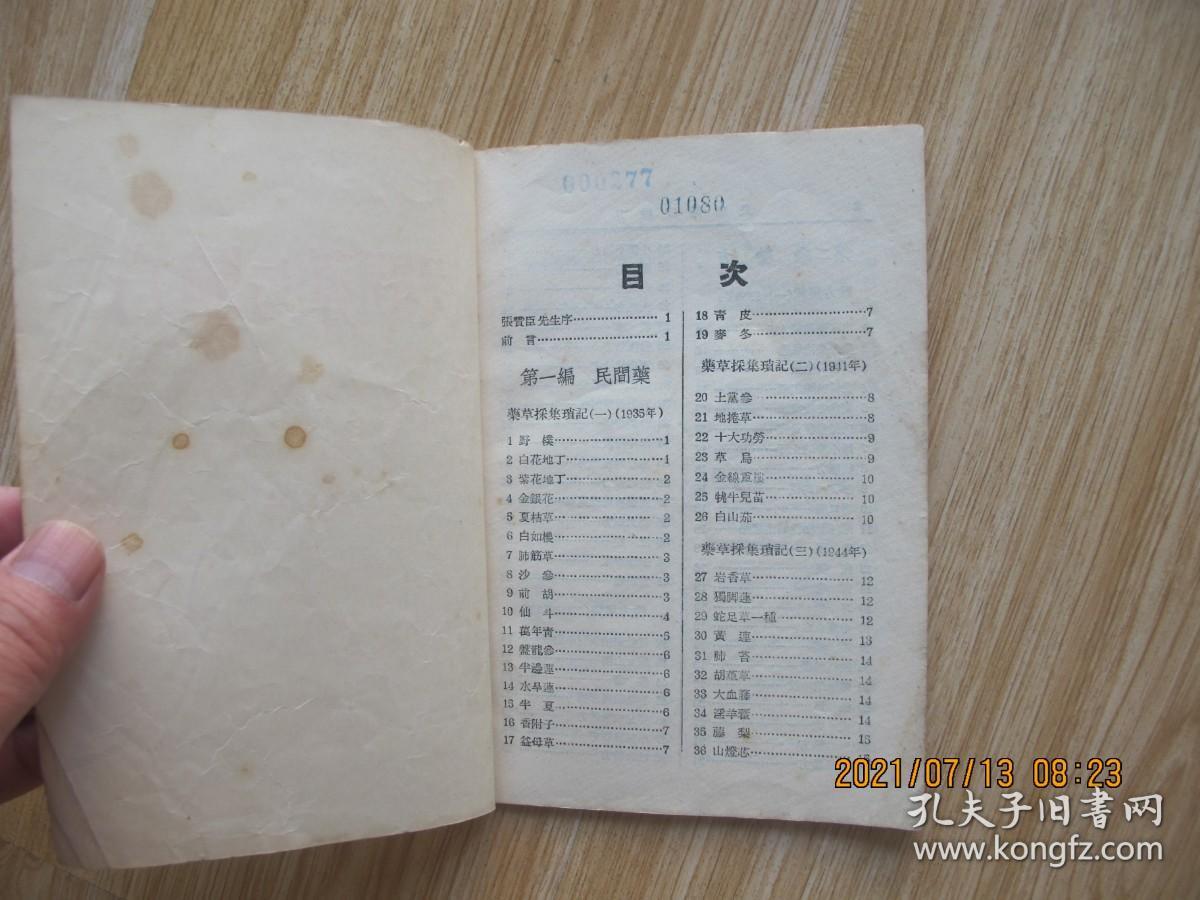 000277
01080
目 次
張贊臣先生序 1
前 言 1
第一編 民間藥
藥草採集瑣記(一)(1935年)
1 野 樸 1
2 白花地丁 1
3 紫花地丁 2
4 金銀花 2
5 夏枯草 2
6 白如樓 2
7 肺筋草 3
8 沙 參 3
9 前 胡 3
10 仙 斗 4
11 萬年靑 5
12 盤龍參 6
13 半邊蓮 6
14 水旱蓮 6
15 半 夏 6
16 香附子 7
17 益母草 7
18 青 皮 7
19 麥 冬 7
藥草採集瑣記(二)(1941年)
20 土黨參 8
21 地捲草 8
22 十大功勞 9
23 草 烏 9
24 金線重樓 10
25 牻牛兒苗 10
26 白山茄 10
藥草採集瑣記(三)(1944年)
27 岩香草 12
28 獨脚蓮 12
29 蛇足草一種 12
30 黃 連 13
31 肺 苔 14
32 胡菫草 14
33 大血藤 14
34 淫羊藿 14
35 藤 梨 15
36 山燈芯
2021/07/13 08:23
孔夫子旧書网
www.kongfz.com